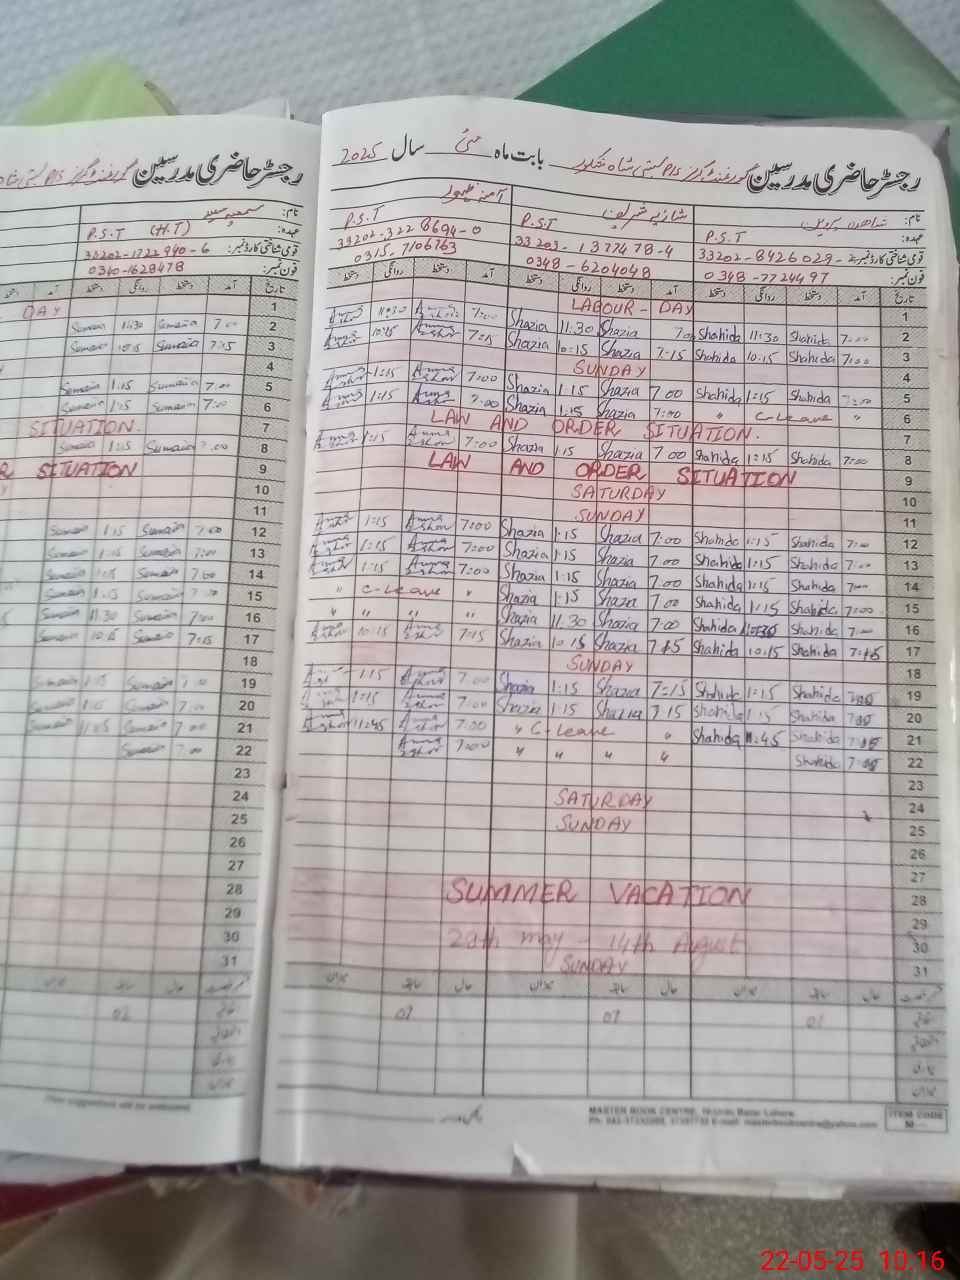 رجسٹر حاضری مدرسین گورنمنٹ گرلز P/S بستی شاہ شکور بابت ماہ مئی سال 2025
نام: شاہدہ پروین
شازیہ شریف
آمنہ ظہور
عہدہ: P.S.T
P.S.T
P.S.T
قومی شناختی کارڈ نمبر: 33202-8426029-2
33203-1377478-4
33202-3228694-0
فون نمبر: 0348-7724497
0348-6204048
0315-7106763
تاریخ آمد دستخط روانگی دستخط آمد دستخط روانگی دستخط آمد دستخط روانگی دستخط
LABOUR - DAY 1
11:30 7:00 Shazia 11:30 Shazia 7:00 Shahida 11:30 Shahida 7:00 2
10:15 7:15 Shazia 10:15 Shazia 7:15 Shahida 10:15 Shahida 7:00 3
SUNDAY 4
1:15 7:00 Shazia 1:15 Shazia 7:00 Shahida 1:15 Shahida 7:00 5
1:15 7:00 Shazia 1:15 Shazia 7:00 " C-Leave " 6
LAW AND ORDER SITUATION. 7
1:15 7:00 Shazia 1:15 Shazia 7:00 Shahida 1:15 Shahida 7:00 8
LAW AND ORDER SITUATION 9
SATURDAY 10
SUNDAY 11
1:15 7:00 Shazia 1:15 Shazia 7:00 Shahida 1:15 Shahida 7:00 12
1:15 7:00 Shazia 1:15 Shazia 7:00 Shahida 1:15 Shahida 7:00 13
1:15 7:00 Shazia 1:15 Shazia 7:00 Shahida 1:15 Shahida 7:00 14
" C-Leave " Shazia 1:15 Shazia 7:00 Shahida 1:15 Shahida 7:00 15
" " " " Shazia 11:30 Shazia 7:00 Shahida Shahida 7:00 16
10:15 7:15 Shazia 10:15 Shazia 7:15 Shahida 10:15 Shahida 7:15 17
SUNDAY 18
1:15 7:00 Shazia 1:15 Shazia 7:15 Shahida 1:15 Shahida 19
1:15 7:00 Shazia 1:15 Shazia 7:15 Shahida 1:15 Shahida 20
11:45 7:00 " C-Leave " Shahida 11:45 Shahida 21
7:00 " " " " Shahida 22
23
SATURDAY 24
SUNDAY 25
26
27
SUMMER VACATION 28
29
28th may - 14th August 30
SUNDAY 31
01 01 01
MASTER BOOK CENTRE, Urdu Bazar Lahore.
ITEM CODE
رجسٹر حاضری مدرسین گورنمنٹ گرلز P/S بستی
نام: سمعیہ سعید
عہدہ: P.S.T (H.T)
قومی شناختی کارڈ نمبر: 33202-1722940-6
فون نمبر: 0340-1628478
تاریخ آمد دستخط روانگی دستخط
DAY 1
Sumaia 11:30 Sumaia 7:00 2
Sumaia 10:15 Sumaia 7:15 3
4
Sumaia 1:15 Sumaia 7:00 5
Sumaia 1:15 Sumaia 7:00 6
SITUATION. 7
Sumaia 1:15 Sumaia 7:00 8
R SITUATION 9
10
11
Sumaia 1:15 Sumaia 7:00 12
Sumaia 1:15 Sumaia 7:00 13
Sumaia 1:15 Sumaia 7:00 14
Sumaia 1:15 Sumaia 7:00 15
Sumaia 11:30 Sumaia 7:00 16
Sumaia 10:15 Sumaia 7:15 17
18
Sumaia 1:15 Sumaia 7:00 19
Sumaia 1:15 Sumaia 7:00 20
Sumaia 11:45 Sumaia 7:00 21
Sumaia 7:00 22
23
24
25
26
27
28
29
30
31
02
22-05-25 10.16